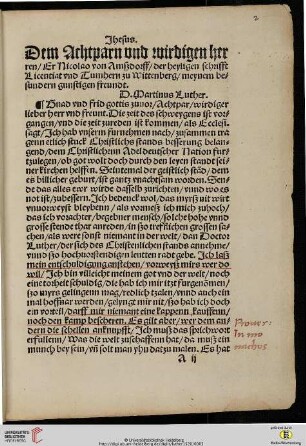 2
Jhesus.
Dem Achtparn vnd wirdigen her
ren/ Er Nicolao von Amßdorff/ der heyligen schrifft
Licentiat vnd Tumhern zu Wittenberg/ meynem be
sundern gunstigen freundt.
D. Martinus Luther.
¶ Gnad vnd frid gottis zuuor/ Achtpar/ wirdiger
lieber herr vnd freunt. Die zeit des schweygens ist vor
gangen/ vnd die zeit zureden ist kommen/ als Eccles.
sagt/ Ich hab vnserm furnehmen nach/ zusammen tra
genn etlich stuck Christlichs stands besserung belan
gend/ dem Christlichenn Adel deutscher Nation
furtzulegen/ ob got wolt doch durch den leyen standt sei
ner kirchen helffen. Seintemal der geistlich stãd/ dem
es billicher geburt/ ist gantz vnachtsam worden. Sen
de das alles ewr wirde dasselb zurichten/ vnnd wo es
not ist/ zubessern. Ich bedenck wol/ das myrß nit wirt
vnuorweyßt bleybenn/ als vormeß ich mich zuhoch/
das ich vorachter/ begebner mensch/ solche hohe vnnd
grosse stende thar anreden/ in ßo trefflichen grossen sa
chen/ als were sonst niemant in der welt/ dan Doctor
Luther/ der sich des Christenlichen stands annehme/
vnnd ßo hochuorstendigen leutten radt gebe. Ich laß
mein entschuldigung anstehen/ vorweyß mirs wer do
wil/ Ich bin villeicht meinem got vnd der welt/ noch
eine torheit schuldig/ die hab ich mir itzt furgenõmen/
ßo myrs gelingenn mag/ redlich tzalen/ vnd auch ein
mal hoffnar werden/ gelyngt mir nit/ ßo hab ich doch
ein vorteil/ darff mir niemant eine kappenn kauffenn/
noch den kamp bescheren. Es gilt aber/ wer dem an
dern die schellen anknupfft/ Ich muß das sprichwort
erfullenn/ Was die welt zuschaffenn hat/ da muß ein
munch bey sein/ vñ solt man yhn datzu malen. Es hat
A ij
In mo
nachos
Universitätsbibliothek Heidelberg